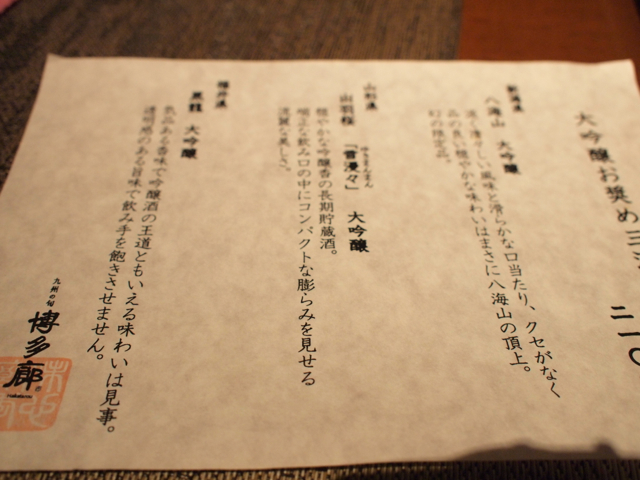 大吟醸お奨め三
二一〇
新潟県
八海山 大吟醸
清々しい風味と滑らかな口当たり、クセがなく
品の良い穏やかな味わいはまさに八海山の頂上。
幻の限定品。
山形県
出羽桜 「雪漫々」 大吟醸
ゆきまんまん
穏やかな吟醸香の長期貯蔵酒。
端正な飲み口の中にコンパクトな膨らみを見せる
淡麗な美しさ。
福井県
黒龍 大吟醸
気品ある香味で吟醸酒の王道ともいえる味わいは見事。
透明感のある旨味で飲み手を飽きさせません。
九州の旬
博多廊